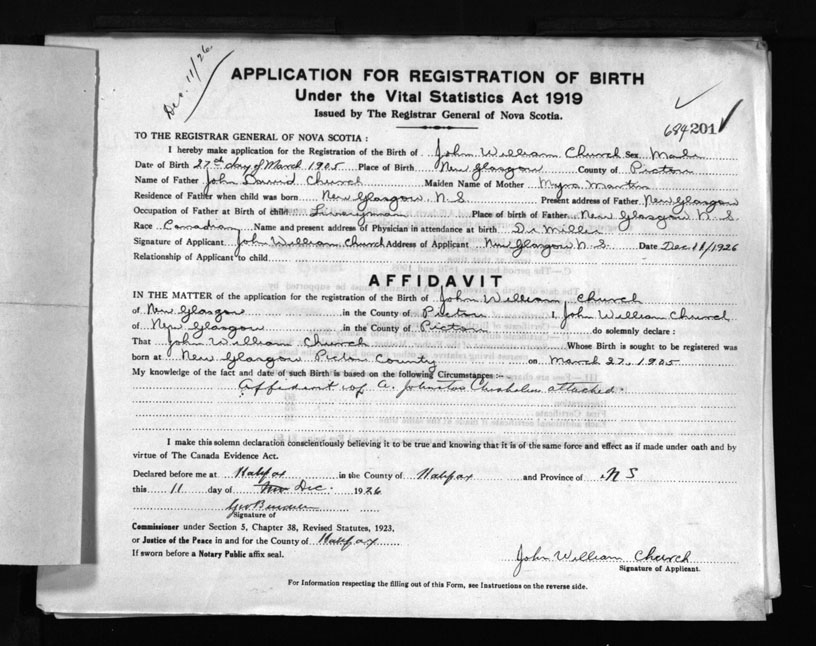 Dec. 11/26
APPLICATION FOR REGISTRATION OF BIRTH
Under the Vital Statistics Act 1919
Issued by The Registrar General of Nova Scotia.
684201
TO THE REGISTRAR GENERAL OF NOVA SCOTIA :
I hereby make application for the Registration of the Birth of John William Church Sex Male
Date of Birth 27th day of March 1905 Place of Birth New Glasgow County of Pictou
Name of Father John David Church Maiden Name of Mother Myra Martin
Residence of Father when child was born New Glasgow, N. S. Present address of Father New Glasgow
Occupation of Father at Birth of child Liveryman Place of birth of Father New Glasgow N. S.
Race Canadian Name and present address of Physician in attendance at birth Dr Miller
Signature of Applicant John William Church Address of Applicant New Glasgow N. S. Date Dec 11/1926
Relationship of Applicant to child
AFFIDAVIT
IN THE MATTER of the application for the registration of the Birth of John William Church
of New Glasgow in the County of Pictou I, John William Church
of New Glasgow in the County of Pictou do solemnly declare :
That John William Church Whose Birth is sought to be registered was
born at New Glasgow Pictou County on March 27, 1905
My knowledge of the fact and date of such Birth is based on the following Circumstances :-
Affidavit of A. Johnston Chisholm attached.
I make this solemn declaration conscientiously believing it to be true and knowing that it is of the same force and effect as if made under oath and by
virtue of The Canada Evidence Act.
Declared before me at Halifax in the County of Halifax and Province of N S
this 11 day of Nov Dec. 1926
Signature of
Commissioner under Section 5, Chapter 38, Revised Statutes, 1923,
or Justice of the Peace in and for the County of Halifax
If sworn before a Notary Public affix seal.
John William Church
Signature of Applicant.
For Information respecting the filling out of this Form, see Instructions on the reverse side.